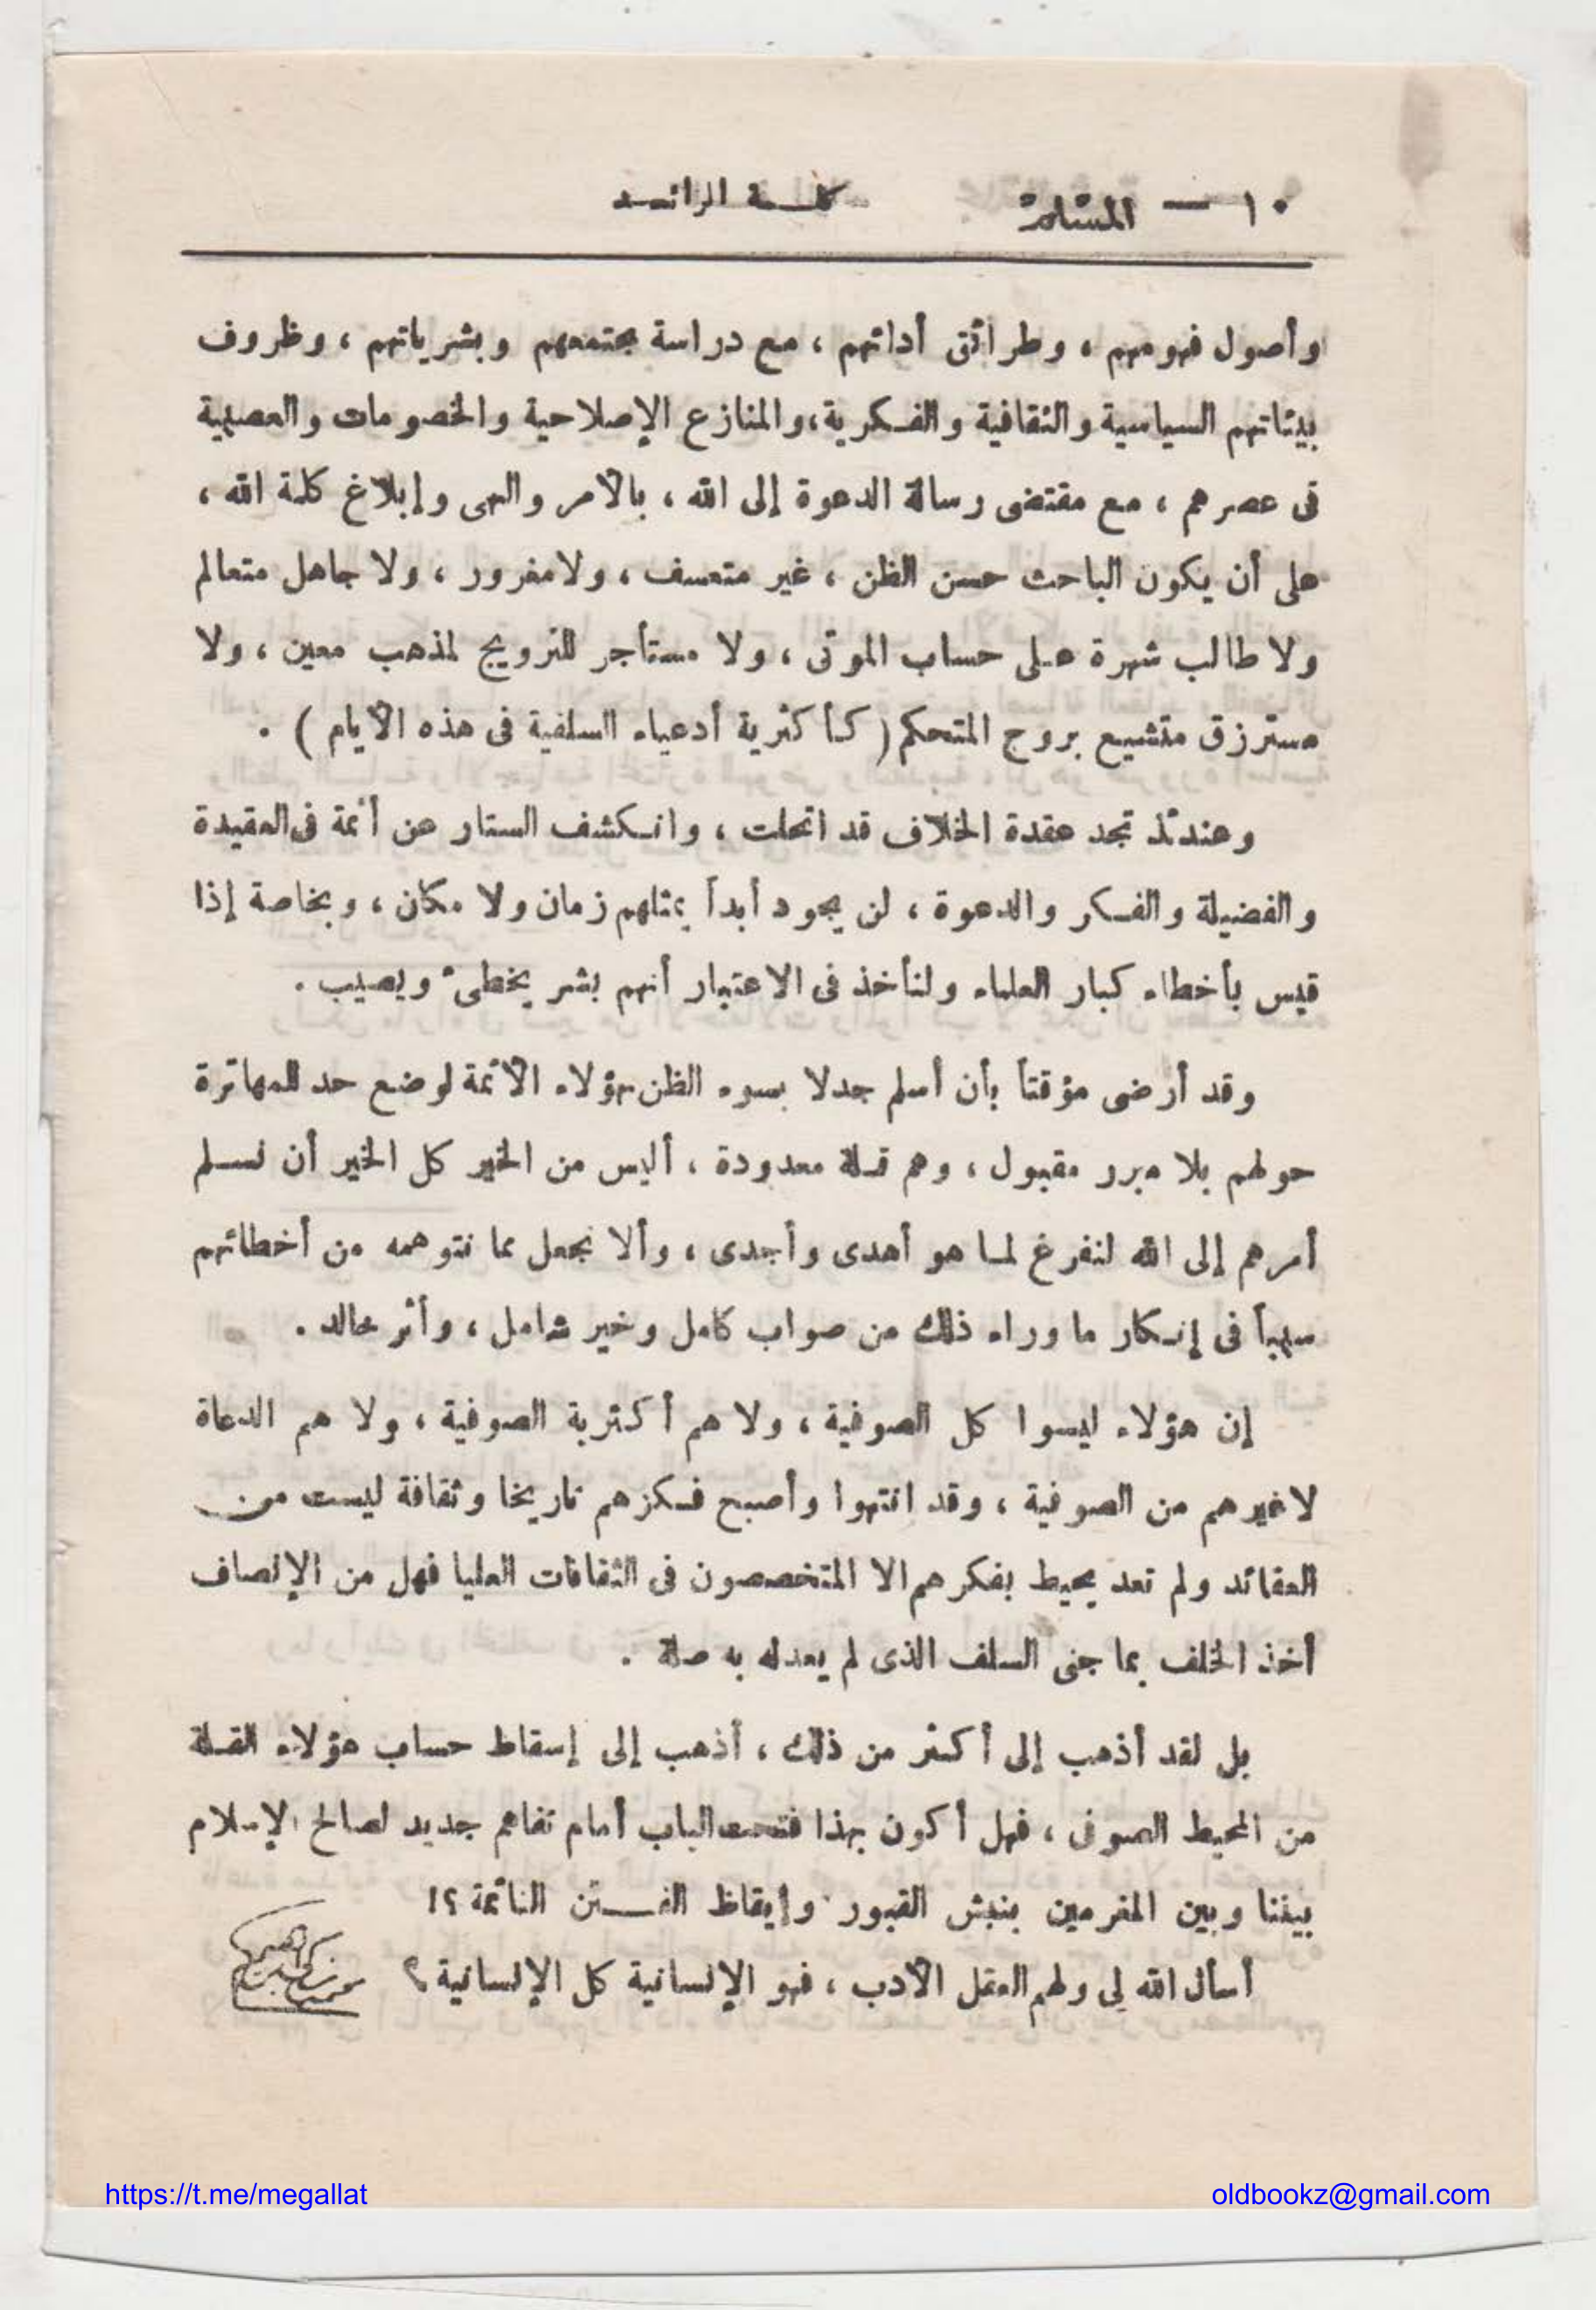 ١٠ — المسلم كلمة الرائد
وأصول فهومهم ، وطرائق أدائهم ، مع دراسة مجتمعهم وبشرياتهم ، وظروف
بيئاتهم السياسية والثقافية والفكرية، والمنازع الإصلاحية والخصومات والعصبية
فى عصرهم ، مع مقتضى رسالة الدعوة إلى الله ، بالأمر والنهى وإبلاغ كلمة الله ،
على أن يكون الباحث حسن الظن ، غير متعسف ، ولا مغرور ، ولا جاهل متعالم
ولا طالب شهرة على حساب الموتى ، ولا مستأجر للترويج لمذهب معين ، ولا
مسترزق متشيع بروح المتحكم ( كأكثرية أدعياء السلفية فى هذه الأيام ) .
وعندئذ تجد عقدة الخلاف قد انحلت ، وانكشف الستار عن أئمة فى العقيدة
والفضيلة والفكر والدعوة ، لن يجود أبداً بمثلهم زمان ولا مكان ، وبخاصة إذا
قيس بأخطاء كبار العلماء ولنأخذ فى الاعتبار أنهم بشر يخطىء ويصيب .
وقد أرضى مؤقتاً بأن أسلم جدلا بسوء الظن بهؤلاء الأئمة لوضع حد للمهاترة
حولهم بلا مبرر مقبول ، وهم قلة معدودة ، أليس من الخير كل الخير أن نسلم
أمرهم إلى الله لنفرغ لما هو أهدى وأجدى ، وألا نجعل مما نتوهمه من أخطائهم
سبباً فى إنكار ما وراء ذلك من صواب كامل وخير شامل ، وأثر خالد .
إن هؤلاء ليسوا كل الصوفية ، ولا هم أكثرية الصوفية ، ولا هم الدعاة
لاغيرهم من الصوفية ، وقد انتهوا وأصبح فكرهم تاريخا وثقافة ليست من
العقائد ولم تعد يحيط بفكرهم الا المتخصصون فى الثقافات العليا فهل من الإنصاف
أخذ الخلف بما جنى السلف الذى لم يعد له به صلة .
بل لقد أذهب إلى أكثر من ذلك ، أذهب إلى إسقاط حساب هؤلاء القلة
من المحيط الصوفى ، فهل أكون بهذا فتحت الباب أمام تفاهم جديد لصالح الإسلام
بيننا وبين المغرمين بنبش القبور وإيقاظ الفـتن النائمة ؟!
أسأل الله لى ولهم العقل الأدب ، فهو الإنسانية كل الإنسانية ؟
https://t.me/megallat
oldbookz@gmail.com